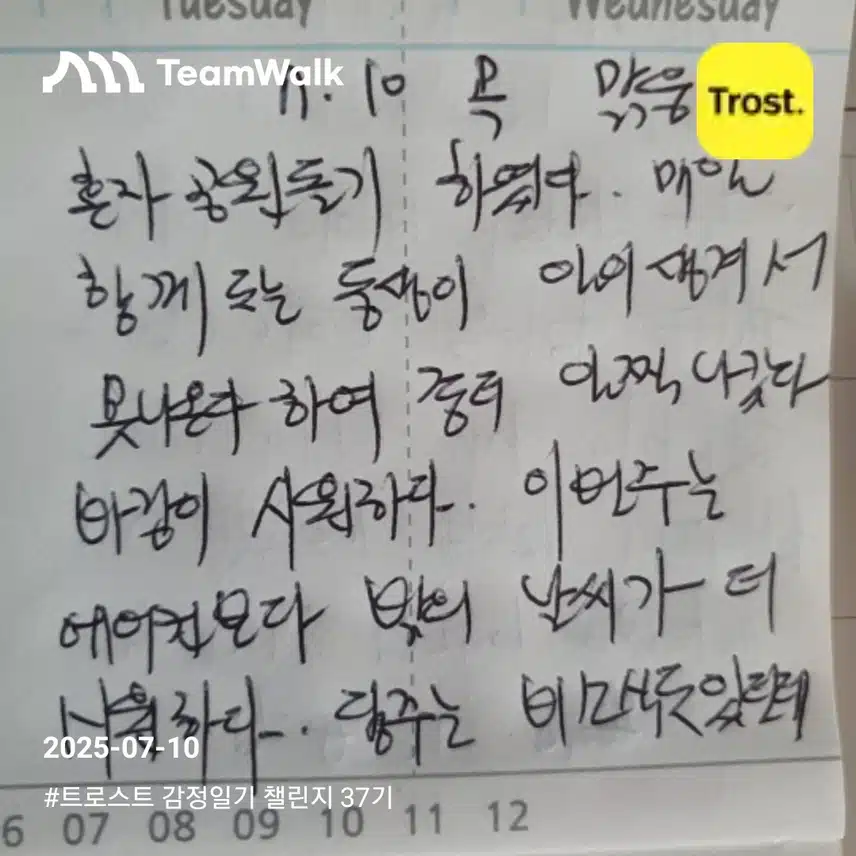 Tuesday Wednesday
TeamWalk
Trost.
7.10 목 맑음
혼자 공원돌기 하였다. 매일
함께 도는 동생이 일이 생겨서
못나온다 하여 일찍 나갔다
바람이 시원하다. 이번주는
에어컨보다 밖의 날씨가 더
시원하다. 담주는 비소식도있던데
2025-07-10
#트로스트 감정일기 챌린지 37기
6 07 08 09 10 11 12